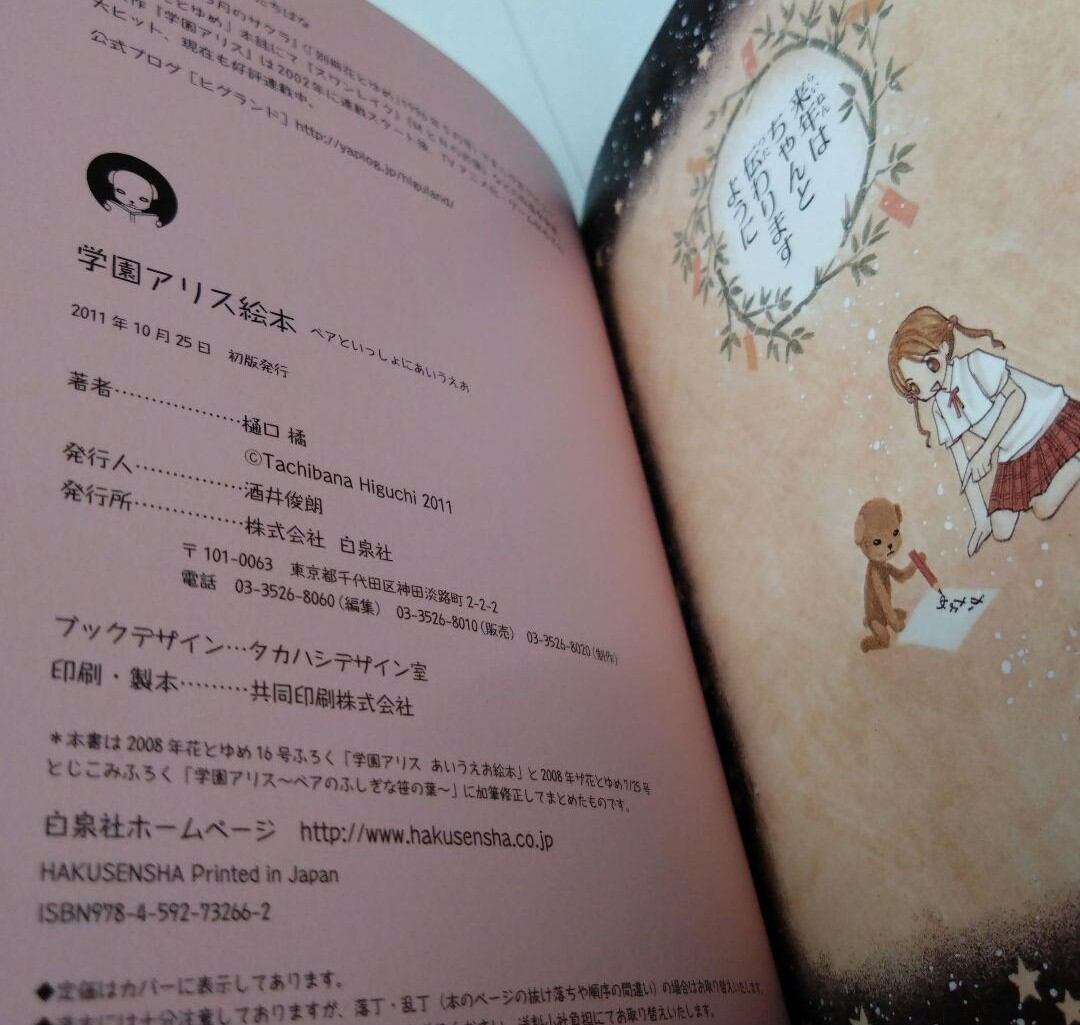 ちばな
月のサクラ」(「別冊花とゆめ」
「花とゆめ」本誌にて「スワンレイク」「MとNの肖像」
作「学園アリス」は2002年に連載スタート後、TVアニメ化・ゲーム化
大ヒット、現在も好評連載中。
公式ブログ[ヒグランド] http://yaplog.jp/higuland/
学園アリス絵本 ベアといっしょにあいうえお
2011年10月25日 初版発行
著者………………樋口 橘
©Tachibana Higuchi 2011
発行人……………酒井俊朗
発行所……………株式会社 白泉社
〒101-0063 東京都千代田区神田淡路町2-2-2
電話 03-3526-8060(編集) 03-3526-8010(販売) 03-3526-8020(制作)
ブックデザイン…タカハシデザイン室
印刷・製本………共同印刷株式会社
*本書は2008年花とゆめ16号ふろく「学園アリス あいうえお絵本」と2008年ザ花とゆめ7/25号
とじこみふろく「学園アリス〜ベアのふしぎな笹の葉〜」に加筆修正してまとめたものです。
白泉社ホームページ http://www.hakusensha.co.jp
HAKUSENSHA Printed in Japan
ISBN978-4-592-73266-2
◆定価はカバーに表示してあります。
◆造本には十分注意しておりますが、落丁・乱丁(本のページの抜け落ちや順序の間違い)の場合はお取り替えいたします。
送料小社負担にてお取り替えいたします。
来年は
ちゃんと
伝わります
ように